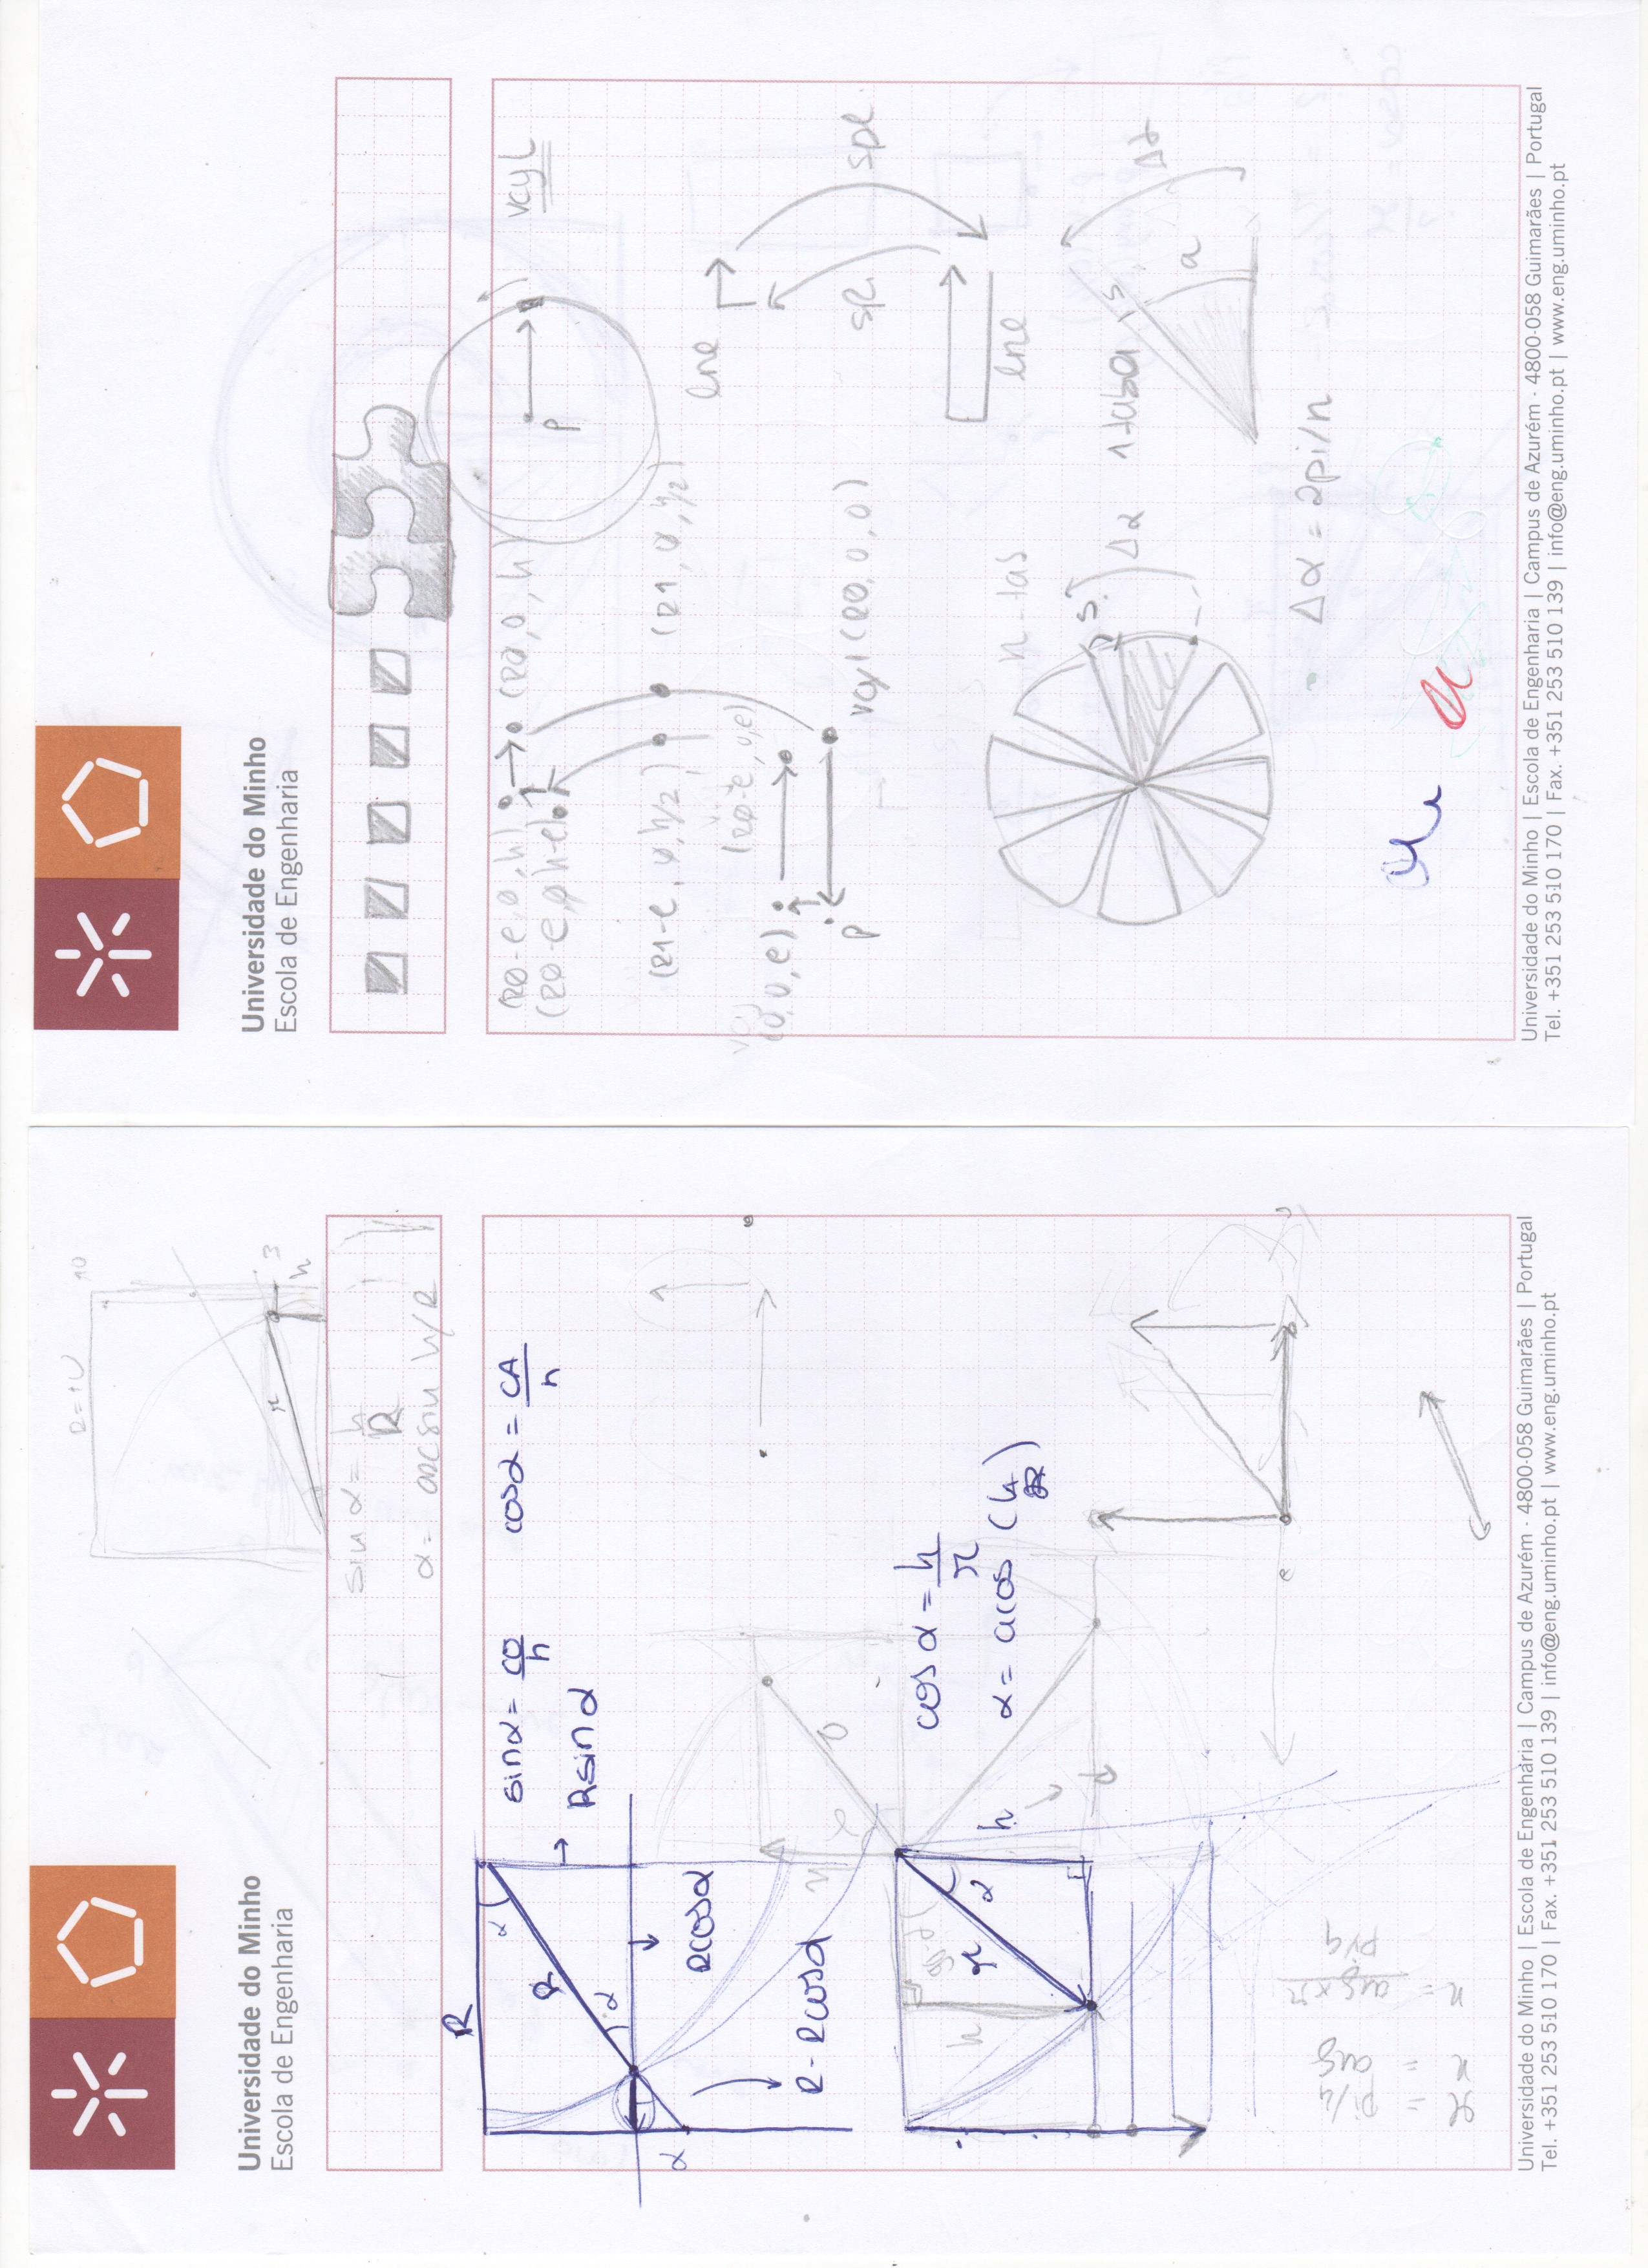 Universidade do Minho
Escola de Engenharia
R=10
10
r
3
h
sin α = h
R
α = arcsin h/R
R
α
R
α
α
sinα = CO
h
cosα = CA
h
Rsin α
Rcosα
R - Rcosα
h
r
α
h
cos α = h
r
α = acos (h
R)
r = pi/4
x = ang
x = ang x r
pi/4
Universidade do Minho | Escola de Engenharia | Campus de Azurém - 4800-058 Guimarães | Portugal
Tel. +351 253 510 170 | Fax. +351 253 510 139 | info@eng.uminho.pt | www.eng.uminho.pt
Universidade do Minho
Escola de Engenharia
(R0-e, 0, h)
(R0, 0, h)
(R0-e, 0, h-e)
P
vcyl
(R1-e, 0, h/2)
(R1, 0, h/2)
(R0-e, 0, e)
(0, 0, e)
P
vcyl (R0, 0, 0)
lne
spl
spl
lne
n-tas
s
Δα
1 taba
s
a
Δα
Δα = 2pi/n
Universidade do Minho | Escola de Engenharia | Campus de Azurém - 4800-058 Guimarães | Portugal
Tel. +351 253 510 170 | Fax. +351 253 510 139 | info@eng.uminho.pt | www.eng.uminho.pt